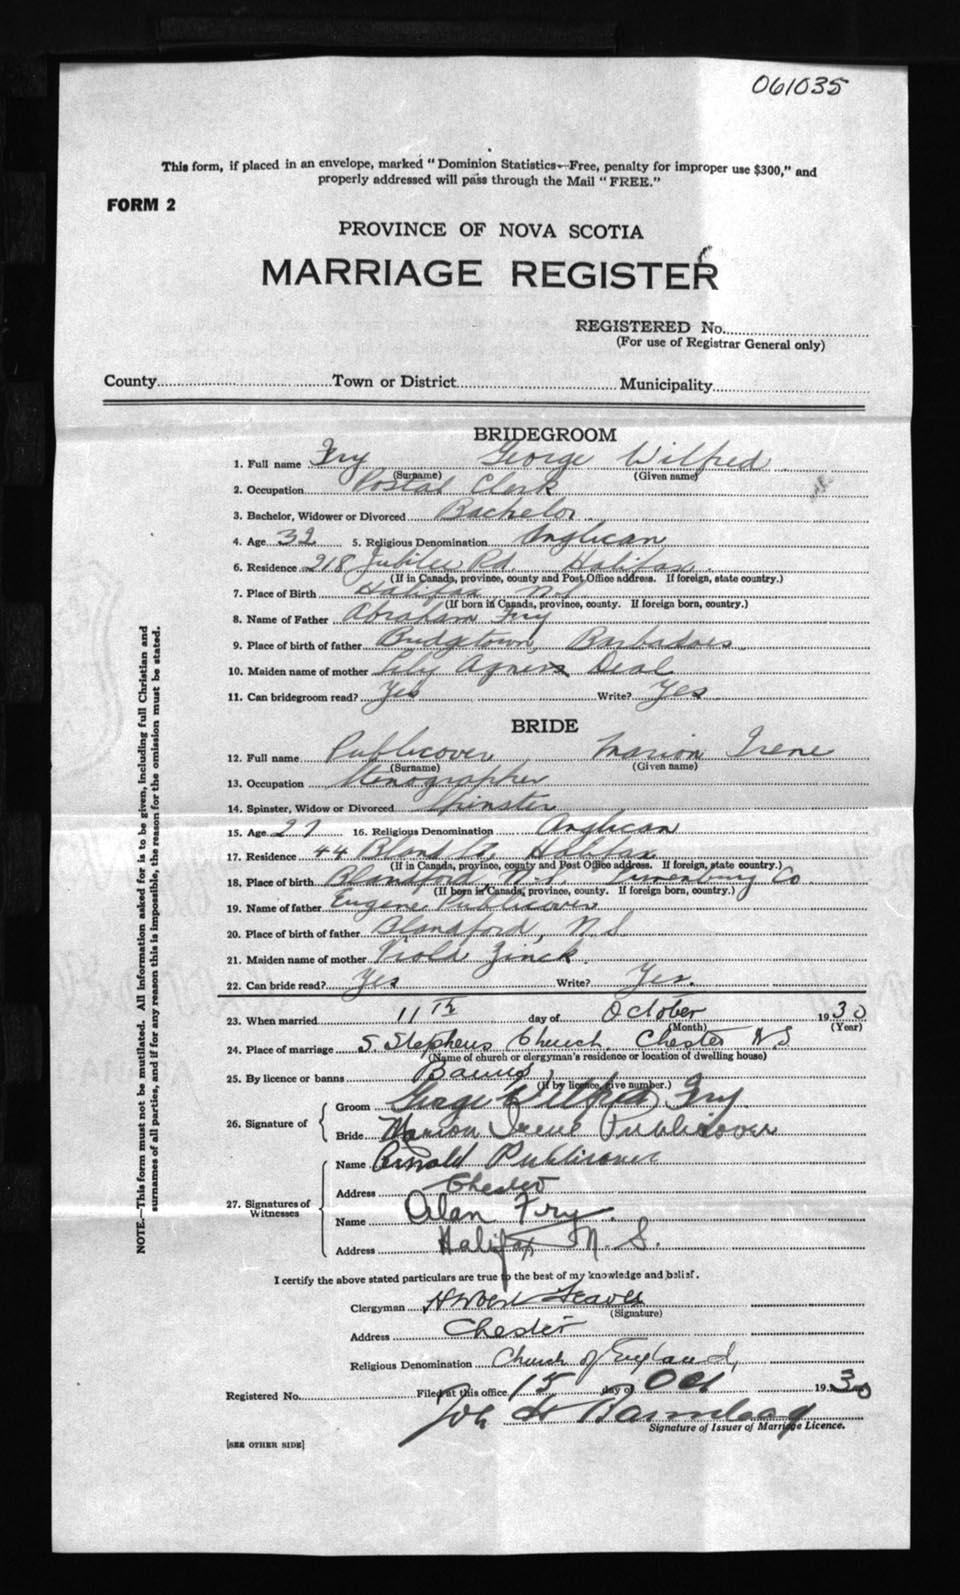 061035
This form, if placed in an envelope, marked "Dominion Statistics—Free, penalty for improper use $300," and
properly addressed will pass through the Mail "FREE."
FORM 2
PROVINCE OF NOVA SCOTIA
MARRIAGE REGISTER
REGISTERED No.
(For use of Registrar General only)
County Town or District Municipality
BRIDEGROOM
1. Full name Fry George Wilfred
(Surname) (Given name)
2. Occupation Postal Clerk
3. Bachelor, Widower or Divorced Bachelor
4. Age 32 5. Religious Denomination Anglican
6. Residence 218 Jubilee Rd. Halifax.
(If in Canada, province, county and Post Office address. If foreign, state country.)
7. Place of Birth Halifax N.S
(If born in Canada, province, county. If foreign born, country.)
8. Name of Father Abraham Fry
9. Place of birth of father Bridgetown, Barbadoes
10. Maiden name of mother Lily Agness Deal
11. Can bridegroom read? Yes Write? Yes
BRIDE
12. Full name Publicover Marion Irene
(Surname) (Given name)
13. Occupation Stenographer
14. Spinster, Widow or Divorced Spinster
15. Age 27 16. Religious Denomination Anglican
17. Residence 44 Bland St. Halifax
(If in Canada, province, county and Post Office address. If foreign, state country.)
18. Place of birth Blandford N.S Lunenburg Co
(If born in Canada, province, county. If foreign born, country.)
19. Name of father Eugene Publicover
20. Place of birth of father Blandford, N.S
21. Maiden name of mother Viola Zinck.
22. Can bride read? Yes Write? Yes.
23. When married 11th day of October 1930
(Month) (Year)
24. Place of marriage S. Stephens Church. Chester N.S
(Name of church or clergyman's residence or location of dwelling house)
25. By licence or banns Banns
(If by licence, give number.)
26. Signature of
Groom George Wilfred Fry.
Bride Marion Irene Publicover
27. Signatures of Witnesses
Name Arnold Publicover
Address Chester
Name Alan Fry.
Address Halifax N.S.
I certify the above stated particulars are true to the best of my knowledge and belief.
Clergyman
(Signature)
Address Chester
Religious Denomination Church of England,
Registered No. Filed at this office 15 day of Oct 1930
Signature of Issuer of Marriage Licence.
[SEE OTHER SIDE]
NOTE.—This form must not be mutilated. All information asked for is to be given, including full Christian and
surnames of all parties, and if for any reason this is impossible, the reason for the omission must be stated.